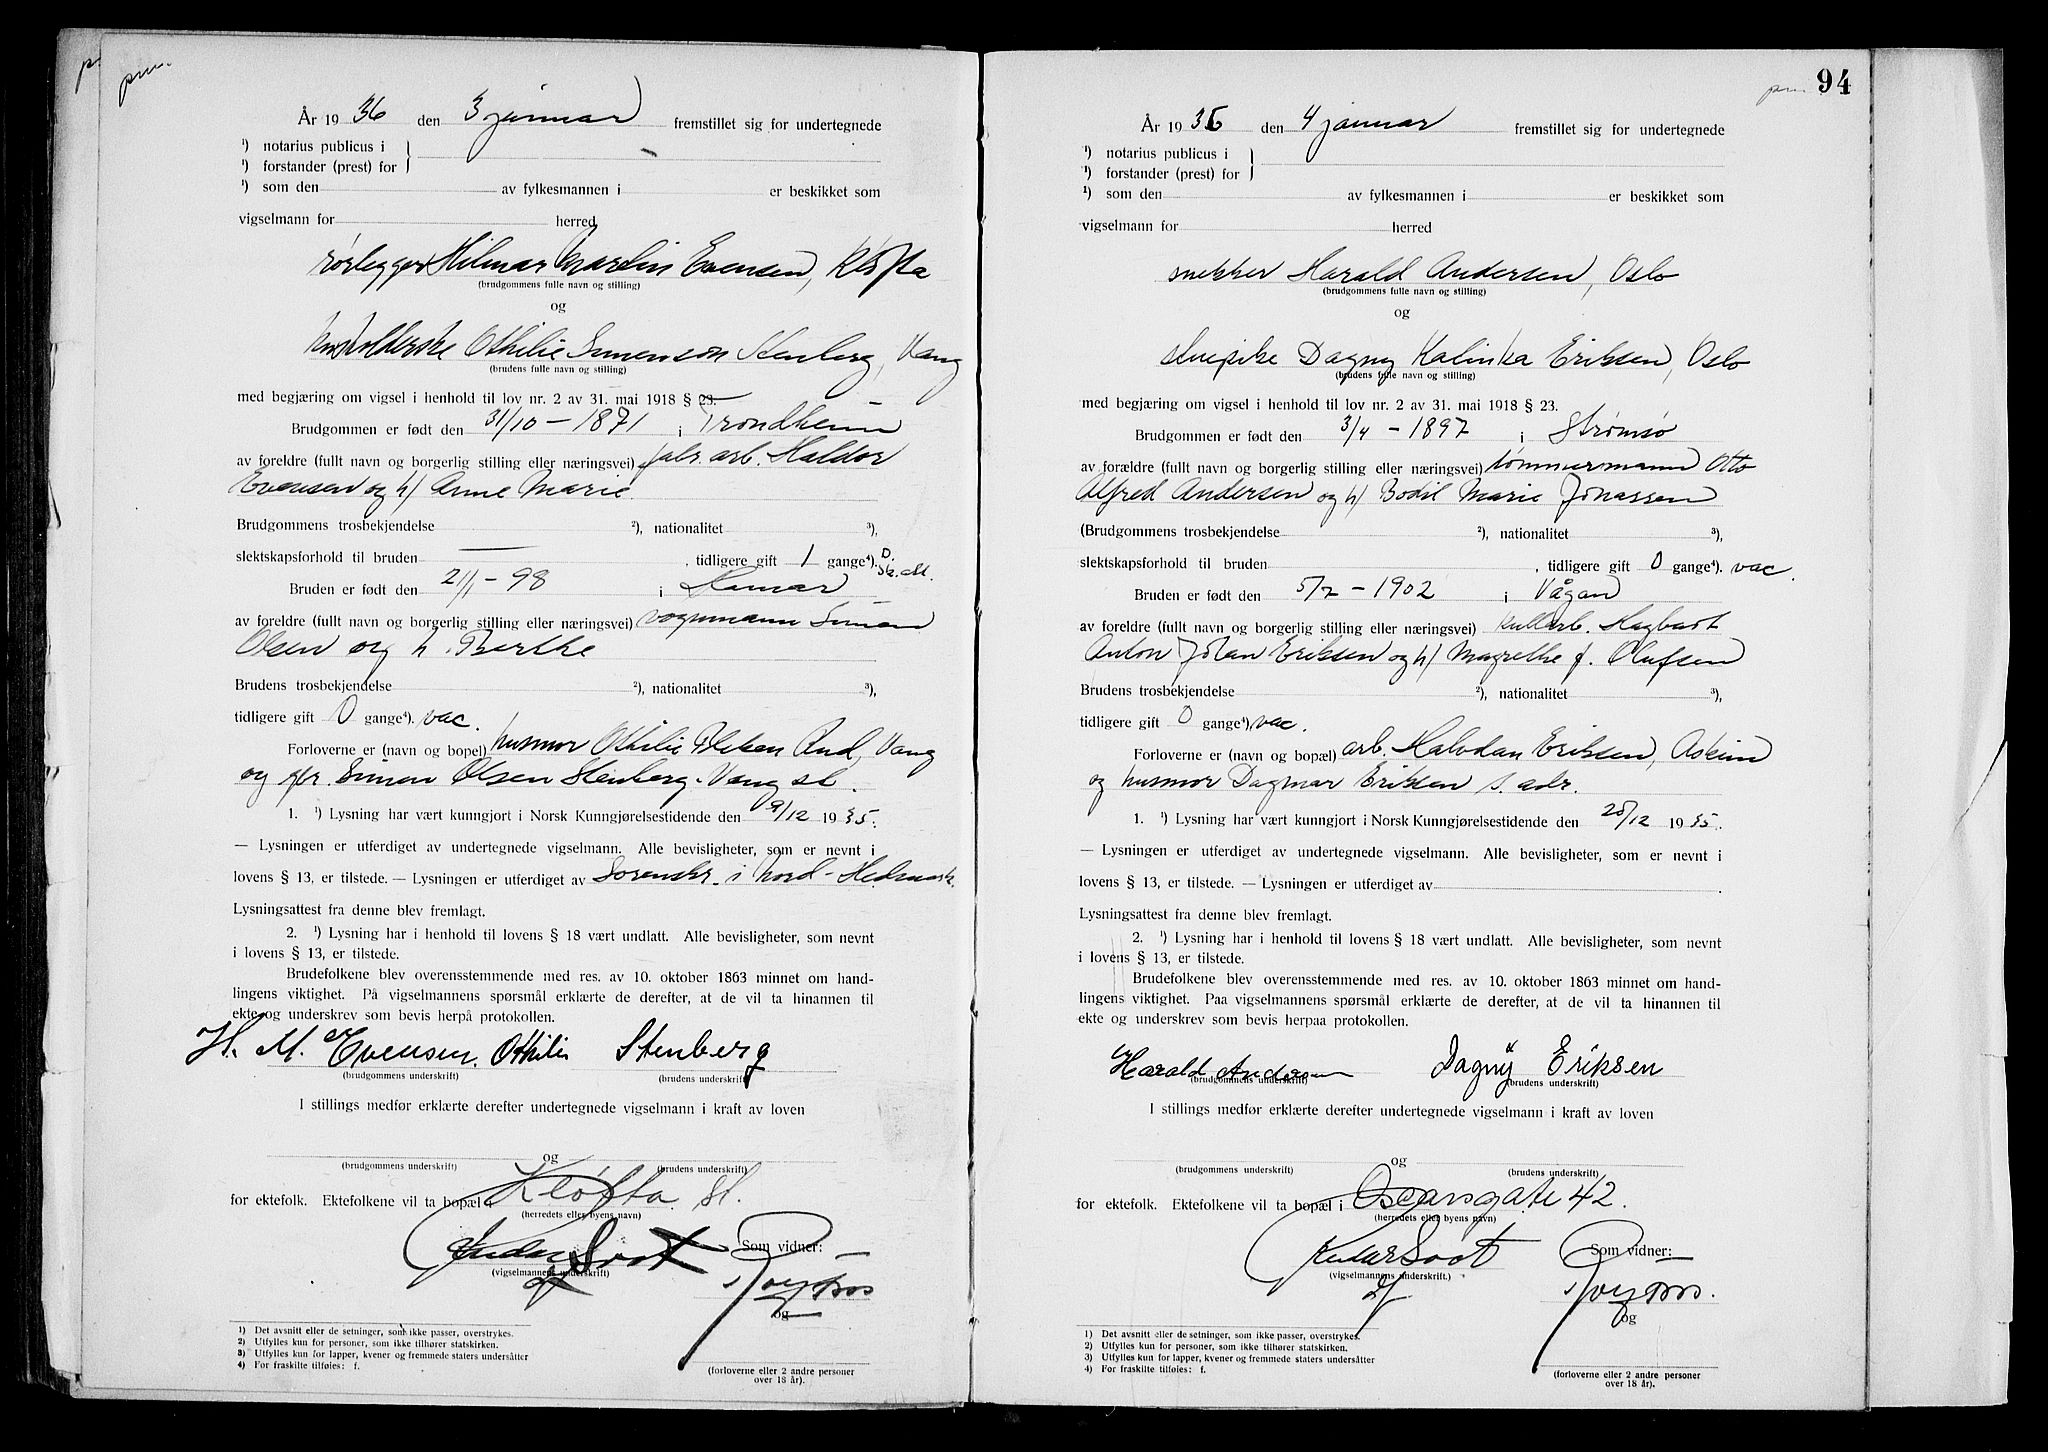 pm.
År 1936 den 3 januar fremstillet sig for undertegnede
¹) notarius publicus i
¹) forstander (prest) for
¹) som den av fylkesmannen i er beskikket som
vigselmann for herred
rørlegger Hilmar Martin Evensen, Kløfta
(brudgommens fulle navn og stilling)
og
husholderske Othilie Simenson Stenberg, Vang
(brudens fulle navn og stilling)
med begjæring om vigsel i henhold til lov nr. 2 av 31. mai 1918 § 23.
Brudgommen er født den 31/10 - 1871 i Trondheim
av foreldre (fullt navn og borgerlig stilling eller næringsvei) fabr. arb. Haldor
Evensen og h/ Anne Marie
Brudgommens trosbekjendelse ²), nationalitet ³),
slektskapsforhold til bruden — , tidligere gift 1 gange⁴).
Bruden er født den 21/1 - 98 i Hamar
av foreldre (fullt navn og borgerlig stilling eller næringsvei) vognmann Simen
Olsen og h. Berthe
Brudens trosbekjendelse ²), nationalitet ³),
tidligere gift 0 gange⁴). vac.
Forloverne er (navn og bopel) husmor Othilie Rud, Vang
og gbr. Simen Olsen Stenberg. Vang st.
1. ¹) Lysning har vært kunngjort i Norsk Kunngjørelsestidende den 9/12 1935.
— Lysningen er utferdiget av undertegnede vigselmann. Alle bevisligheter, som er nevnt i
lovens § 13, er tilstede. — Lysningen er utferdiget av Sorenskr. i Nord-Hedmark.
Lysningsattest fra denne blev fremlagt.
2. ¹) Lysning har i henhold til lovens § 18 vært undlatt. Alle bevisligheter, som nevnt
i lovens § 13, er tilstede.
Brudefolkene blev overensstemmende med res. av 10. oktober 1863 minnet om hand-
lingens viktighet. På vigselmannens spørsmål erklærte de derefter, at de vil ta hinannen til
ekte og underskrev som bevis herpå protokollen.
H. M. Evensen. Othilie Stenberg
(brudgommens underskrift) (brudens underskrift)
I stillings medfør erklærte derefter undertegnede vigselmann i kraft av loven
og
(brudgommens underskrift) (brudens underskrift)
for ektefolk. Ektefolkene vil ta bopæl i Kløfta st.
(herredets eller byens navn)
Som vidner:
(vigselmannens underskrift)
og
1) Det avsnitt eller de setninger, som ikke passer, overstrykes.
2) Utfylles kun for personer, som ikke tilhører statskirken.
3) Utfylles kun for lapper, kvener og fremmede staters undersåtter
4) For fraskilte tilføies: f.
(forloverne eller 2 andre personer
over 18 år).
pm. 94
År 1936 den 4 januar fremstillet sig for undertegnede
¹) notarius publicus i
¹) forstander (prest) for
¹) som den av fylkesmannen i er beskikket som
vigselmann for herred
snekker Harald Andersen, Oslo
(brudgommens fulle navn og stilling)
og
stuepike Dagny Kalinka Eriksen, Oslo
(brudens fulle navn og stilling)
med begjæring om vigsel i henhold til lov nr. 2 av 31. mai 1918 § 23.
Brudgommen er født den 3/4 - 1897 i Strømsø
av forældre (fullt navn og borgerlig stilling eller næringsvei) tømmermann Otto
Alfred Andersen og h/ Bodil Marie Jonassen
(Brudgommens trosbekjendelse ²), nationalitet ³),
slektskapsforhold til bruden , tidligere gift 0 gange⁴). vac.
Bruden er født den 5/7 - 1902 i Vågan
av foreldre (fullt navn og borgerlig stilling eller næringsvei) kullarb. Hagbart
Anton Johan Eriksen og h/ Magrethe f. Olufsen
Brudens trosbekjendelse ²), nationalitet ³),
tidligere gift 0 gange⁴). vac.
Forloverne er (navn og bopæl) arb. Halvdan Eriksen, Askim
og husmor Dagmar Eriksen s. adr.
1. ¹) Lysning har vært kunngjort i Norsk Kunngjørelsestidende den 20/12 1935.
— Lysningen er utferdiget av undertegnede vigselmann. Alle bevisligheter, som er nevnt i
lovens § 13, er tilstede. — Lysningen er utferdiget av
Lysningsattest fra denne blev fremlagt.
2. ¹) Lysning har i henhold til lovens § 18 vært undlatt. Alle bevisligheter, som nevnt
i lovens § 13, er tilstede.
Brudefolkene blev overensstemmende med res. av 10. oktober 1863 minnet om hand-
lingens viktighet. Paa vigselmannens spørsmål erklærte de derefter, at de vil ta hinannen til
ekte og underskrev som bevis herpaa protokollen.
Harald Andersen Dagny Eriksen
(brudgommens underskrift) (brudens underskrift)
I stillings medfør erklærte derefter undertegnede vigselmann i kraft av loven
og
(brudgommens underskrift) (brudens underskrift)
for ektefolk. Ektefolkene vil ta bopæl i Oscarsgate 42.
(herredets eller byens navn)
Som vidner:
(vigselmannens underskrift.)
og
1) Det avsnitt eller de setninger, som ikke passer, overstrykes.
2) Utfylles kun for personer, som ikke tilhører statskirken.
3) Utfylles kun for lapper, kvener og fremmede staters undersåtter
4) For fraskilte tilføies: f.
(forloverne eller 2 andre personer
over 18 år).